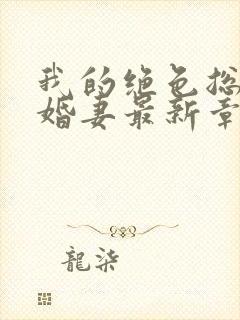 我的绝色总
婚妻最新章
龍柒